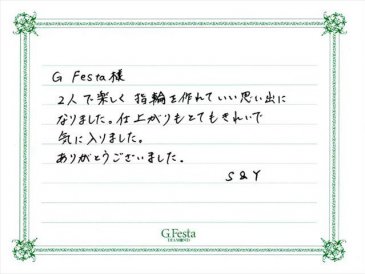 G Festa様
2人で楽しく指輪を作れていい思い出に
なりました。仕上がりもとてもきれいで
気に入りました。
ありがとうございました。
S&Y
G.Festa
DIAMOND